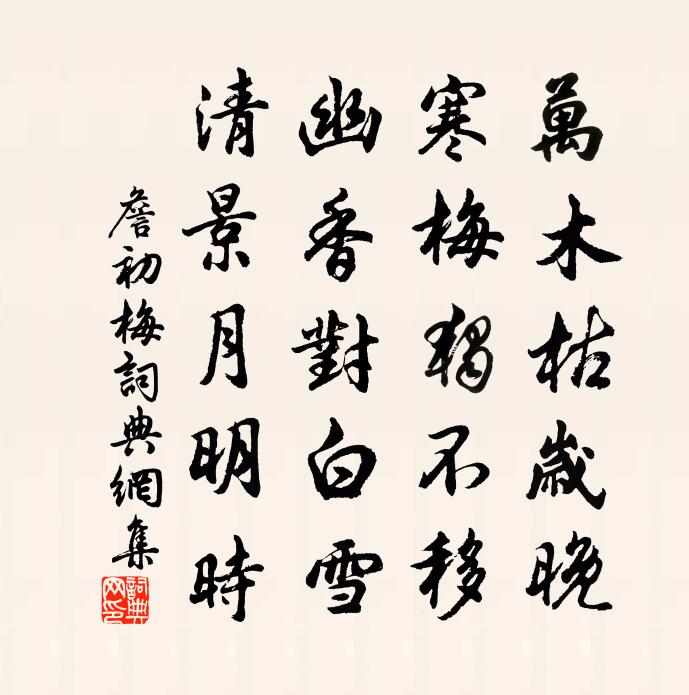 萬木枯歲晚
寒梅獨不移
幽香對白雪
清景月明時
詹初梅詞典網集
詞典网印